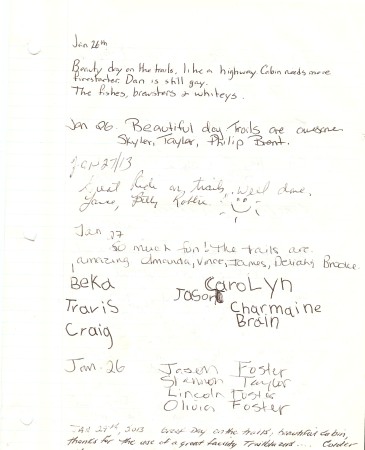 Jan 26th
Beauty day on the trails, like a highway Cabin needs more
firestarter. Dan is still gay.
The fishes, brewsters & whiteys.
Jan 26. Beautiful day Trails are awesome.
Skyler, Taylor, Philip Brent.
Jan 27/13
Great ride on trails, well done.
Billy Robbie
Jan 27
So much fun! The trails are
amazing Amanda, Vince, James, Delilah, Brooke.
Beka
Jason
Carolyn
Travis
Charmaine
Craig
Brain
Jan. 26
Jason Foster
Shannon Taylor
Lincoln Foster
Olivia Foster
Jan 27th, 2013 Great Day on the trails, beautiful cabin,
thanks for the use of a great facility